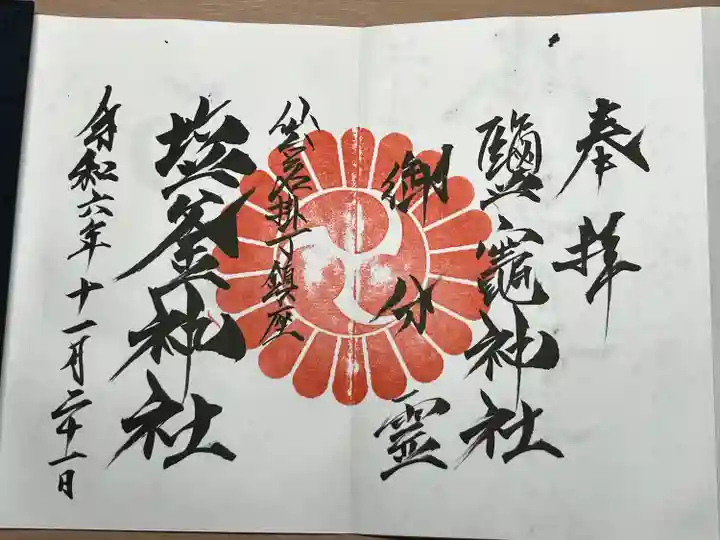 奉拝
鹽竈神社
御分霊
鉄砲町鎮座
塩釜神社
令和六年十一月二十一日